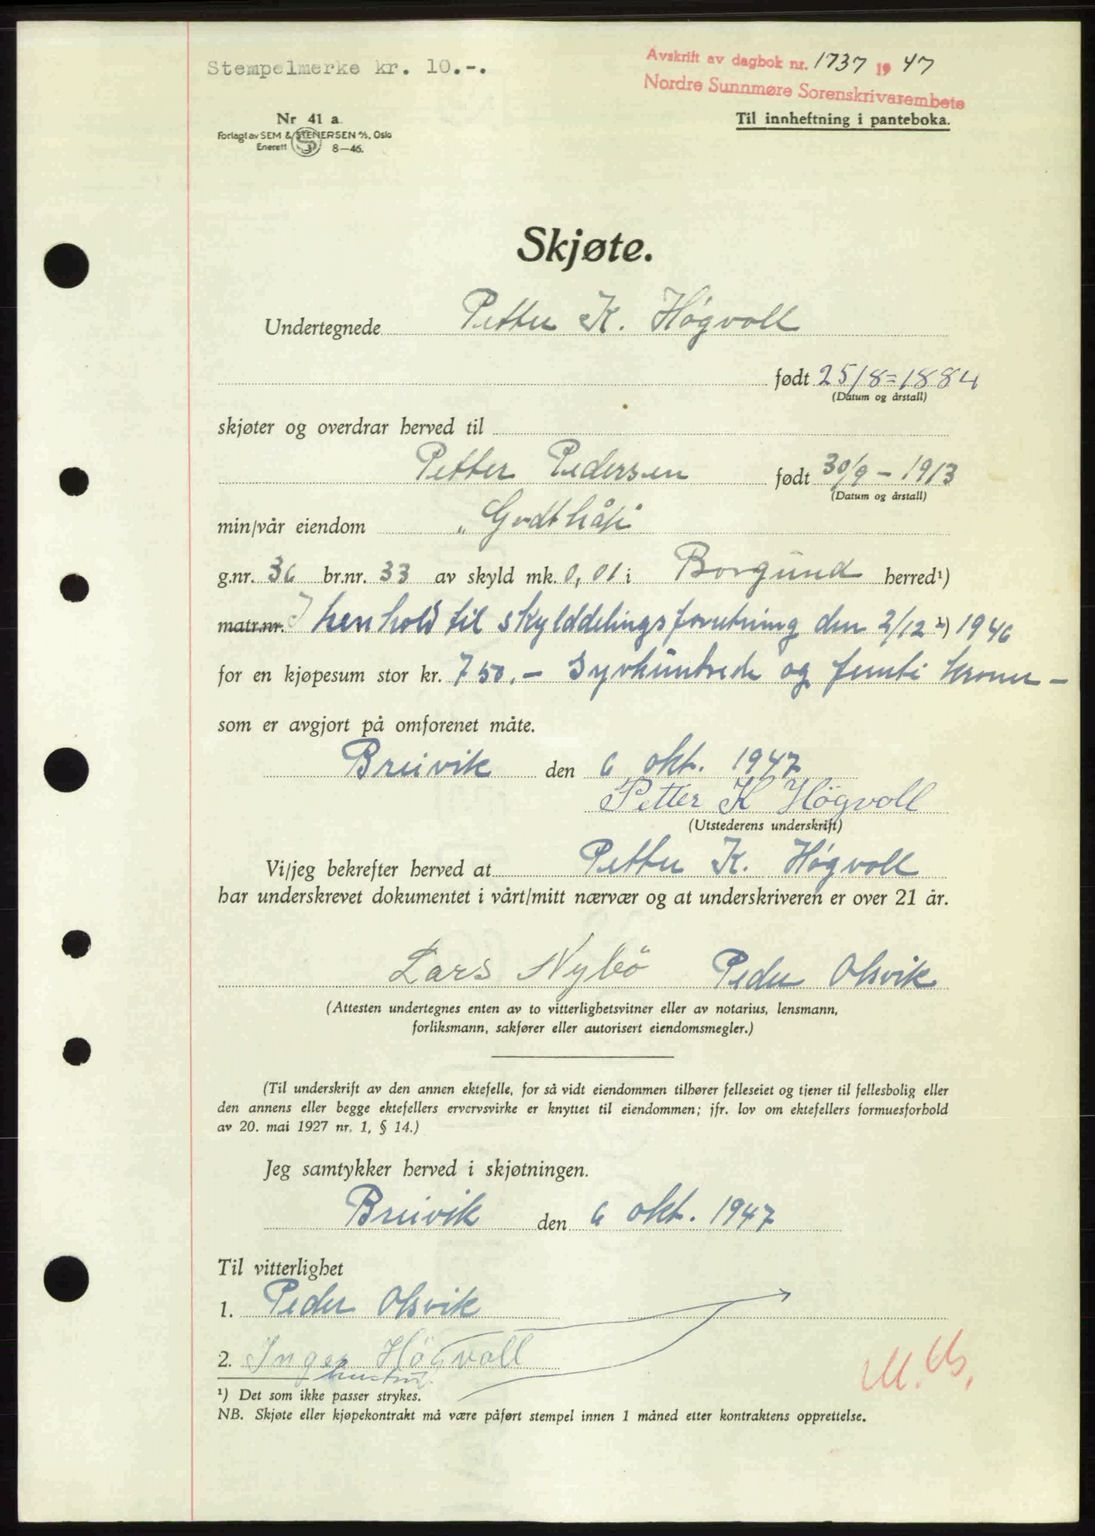 Stempelmerke kr. 10.-.
Avskrift av dagbok nr. 1737 19 47
Nordre Sunnmøre Sorenskrivarembete
Til innheftning i panteboka.
Nr 41 a
Forlagt av SEM & STENERSEN A/S, Oslo
Enerett S 8—46.
Skjøte.
Undertegnede Petter K. Högvoll
født 25/8=1884
(Datum og årstall)
skjøter og overdrar herved til
Petter Pedersen født 30/9 - 1913
(Datum og årstall)
min/vår eiendom "Godthåp"
g.nr. 36 br.nr. 33 av skyld mk. 0,01 i Borgund herred¹)
matr.nr. I henhold til skylddelingsforretning den 2/12 ²) 1946
for en kjøpesum stor kr. 750.- Syvhundrede og femti kroner -
som er avgjort på omforenet måte.
Breivik den 6 okt. 1947
Petter K Högvoll
(Utstederens underskrift)
Vi/jeg bekrefter herved at Petter K. Högvoll
har underskrevet dokumentet i vårt/mitt nærvær og at underskriveren er over 21 år.
Lars Nybö Peder Olsvik
(Attesten undertegnes enten av to vitterlighetsvitner eller av notarius, lensmann,
forliksmann, sakfører eller autorisert eiendomsmegler.)
(Til underskrift av den annen ektefelle, for så vidt eiendommen tilhører felleseiet og tjener til fellesbolig eller
den annens eller begge ektefellers ervervsvirke er knyttet til eiendommen; jfr. lov om ektefellers formuesforhold
av 20. mai 1927 nr. 1, § 14.)
Jeg samtykker herved i skjøtningen.
Breivik den 6 okt. 1947
Til vitterlighet
1. Peder Olsvik
2. Inger Högvoll
hustru.
¹) Det som ikke passer strykes.
NB. Skjøte eller kjøpekontrakt må være påført stempel innen 1 måned etter kontraktens opprettelse.